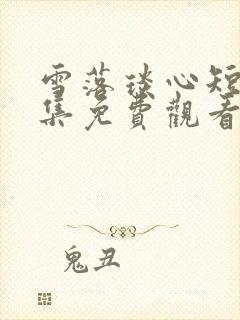 雪落琰心短
集免費觀看
鬼丑